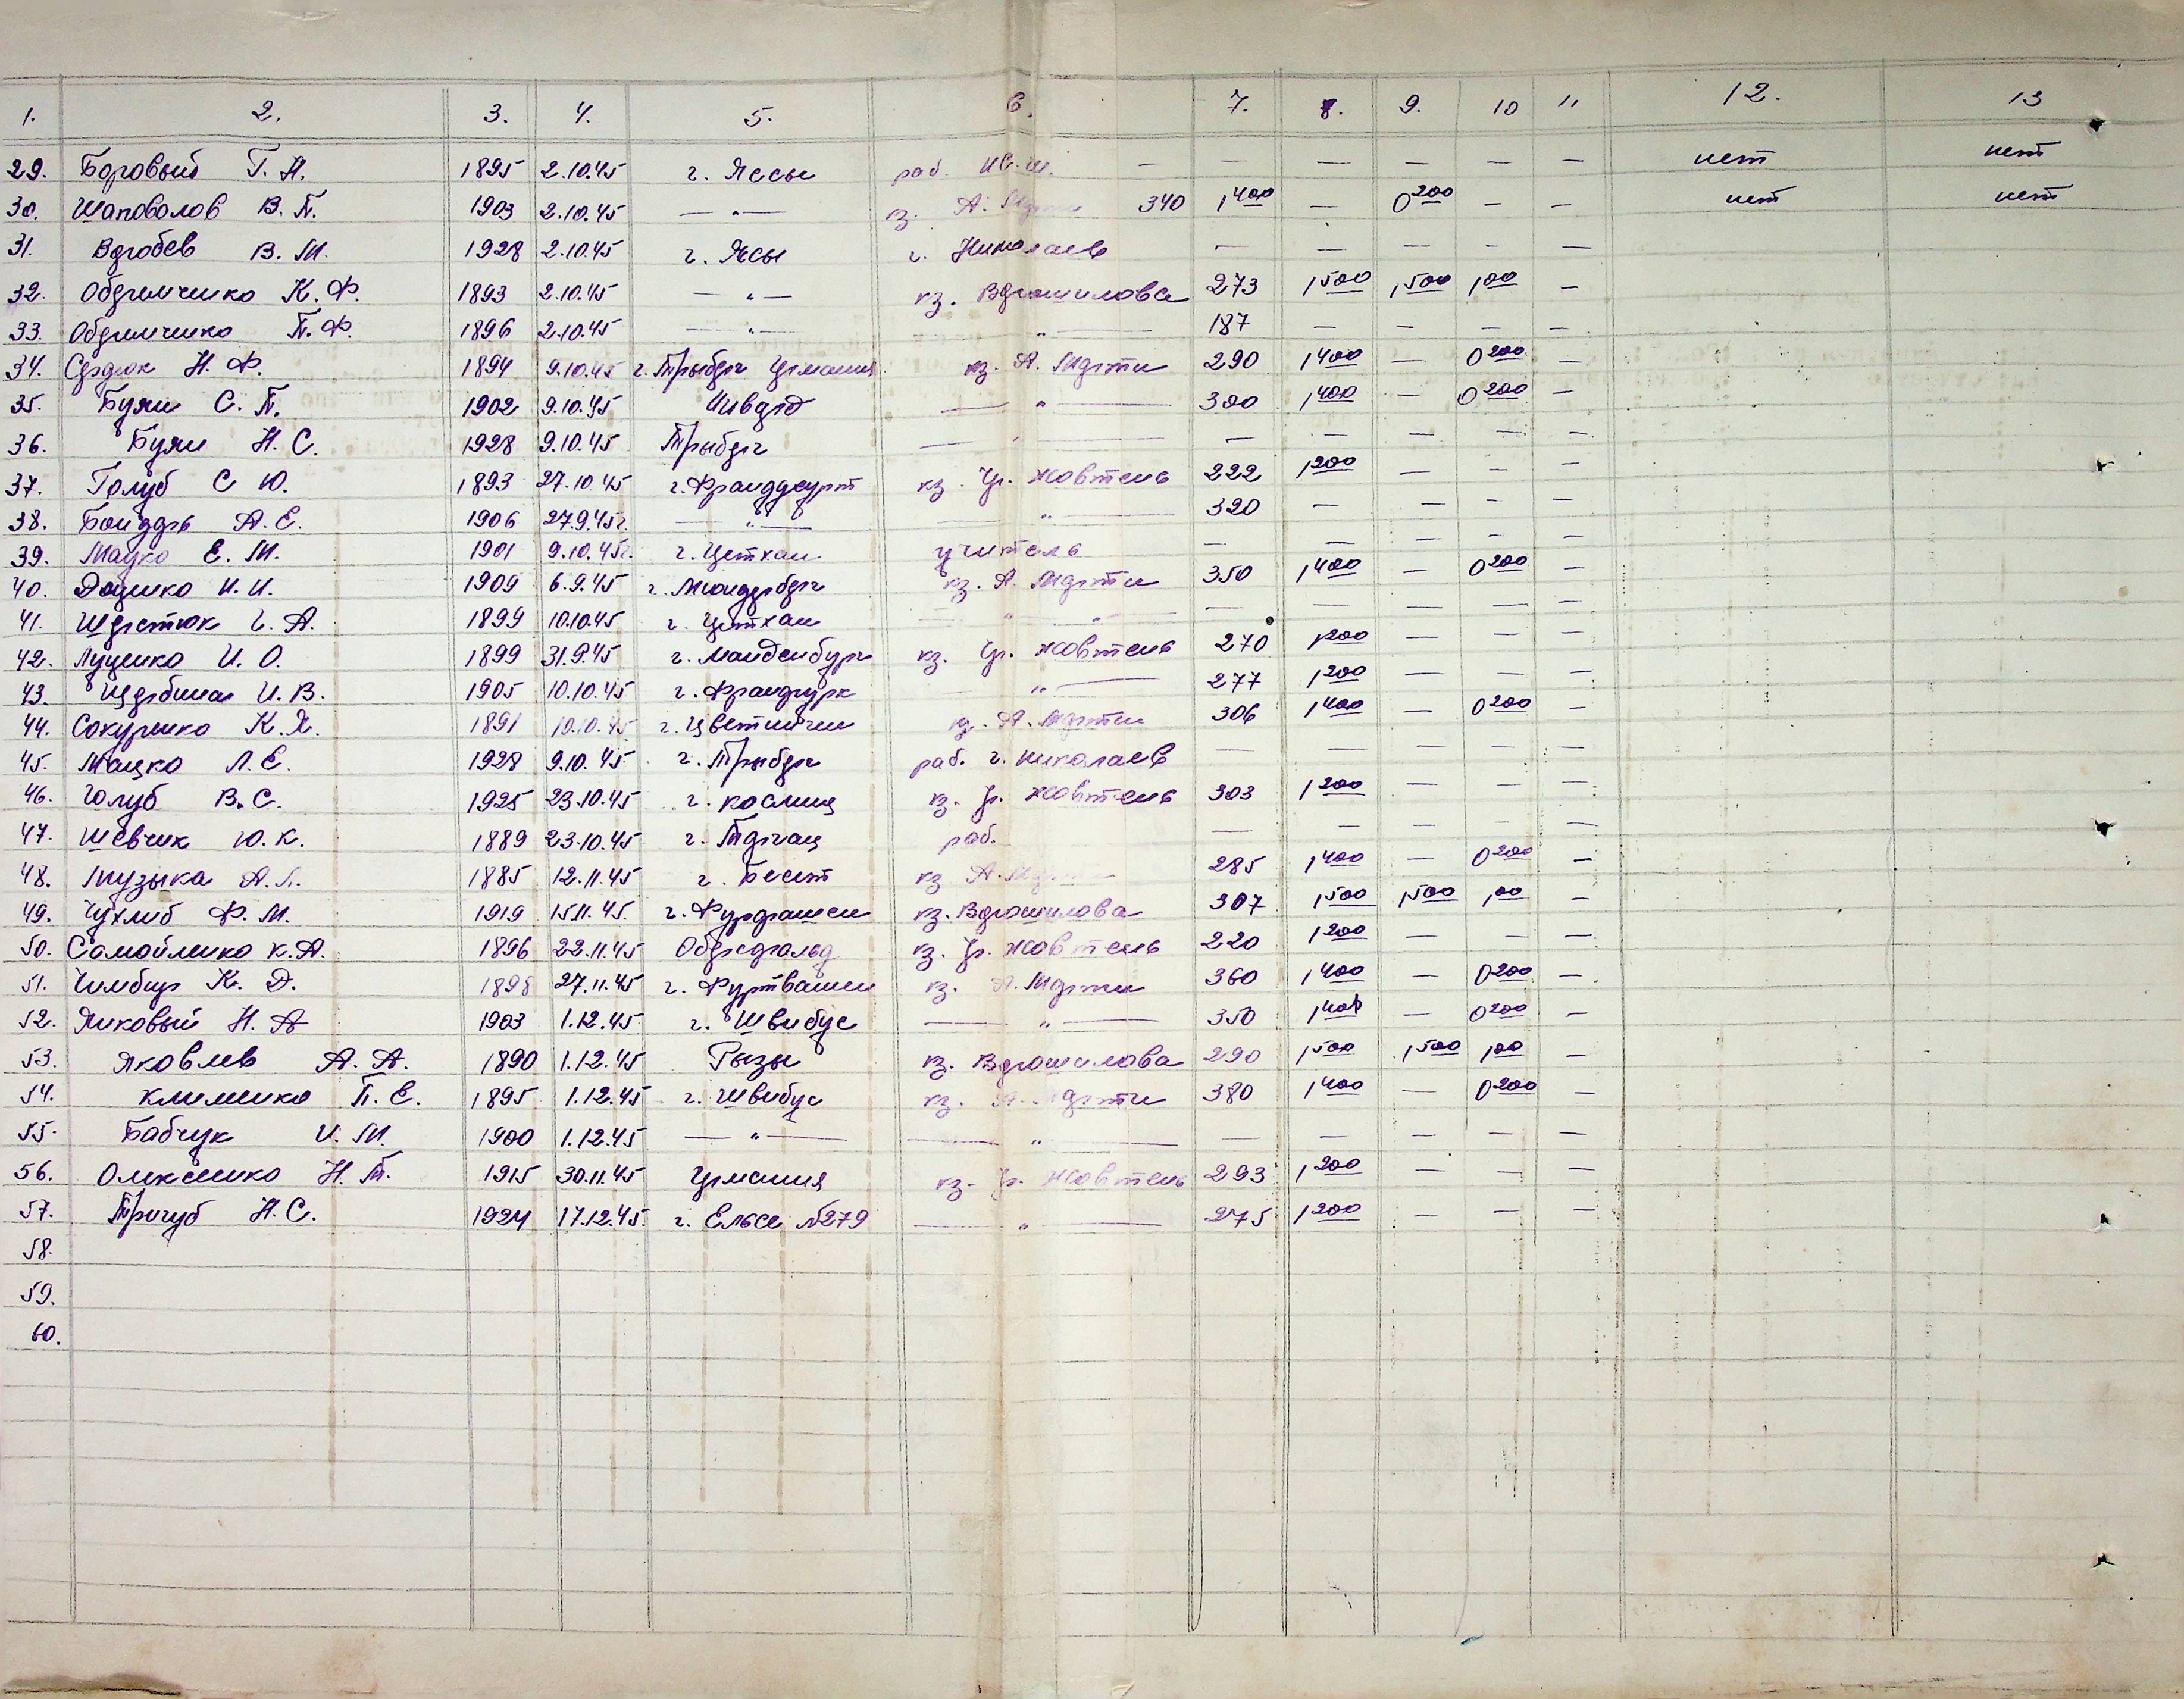 1. 2. 3. 4. 5. 6. 7. 8. 9. 10 11 12. 13
29. Боровый Г. А. 1895 2.10.45 г. Яссы раб. — — — — — — нет нет
30. Шаповолов В. П. 1903 2.10.45 — " — кз. А. Марти 340 1400 — 0200 — — нет нет
31. В. М. 1928 2.10.45 г. Ясы г. Николаев — — — — —
32. К. Ф. 1893 2.10.45 — " — кз. Ворошилова 273 1500 1500 100 —
33. П. Ф. 1896 2.10.45 — " — — " — 187 — — — —
34. Сердюк Н. Ф. 1894 9.10.45 кз. А. Марти 290 1400 — 0200 —
35. Буян С. П. 1902 9.10.45 — " — 300 1400 — 0200 —
36. Буян Н. С. 1928 9.10.45 — " — — — — — —
37. Голуб С Ю. 1893 27.10.45 кз. Чр. жовтень 222 1200 — — —
38. А. Е. 1906 27.9.45г. — " — — " — 320 — — — —
39. Мацко Е. М. 1901 9.10.45г. г. Цетхан учитель — — — — —
40. И. И. 1909 6.9.45 кз. А. Марти 350 1400 — 0200 —
41. Шерстюк Г. А. 1899 10.10.45 г. Цетхан — " — " — — — — — —
42. Луценко И. О. 1899 31.9.45 г. Манденбург кз. Чр. жовтень 270 1200 — — —
43. Щербина И. В. 1905 10.10.45 — " — 277 1200 — — —
44. Сокуренко К. Я. 1891 10.10.45 кз. А. Марти 306 1400 — 0200 —
45. Мацко Л. Е. 1928 9.10.45 раб. г. Николаев — — — — —
46. Голуб В. С. 1925 23.10.45 кз. Чр. жовтень 303 1200 — — —
47. Шевчик Ю. К. 1889 23.10.45 раб. — — — — —
48. Музыка А. П. 1885 12.11.45 кз А. Марти 285 1400 — 0200 —
49. Чухлиб Ф. М. 1919 15.11.45. кз. Ворошилова 307 1500 1500 100 —
50. Самойленко К. А. 1896 22.11.45 кз. Чр. жовтень 220 1200 — — —
51. Чимбир К. Д. 1898 27.11.45 кз. А. Марти 360 1400 — 0200 —
52. Янковый Н. А 1903 1.12.45 г. Швибус — " — 350 1400 — 0200 —
53. Яковлев А. А. 1890 1.12.45 Рызы кз. Ворошилова 290 1500 1500 100 —
54. Клименко П. Е. 1895 1.12.45 г. Швибус кз. А. Марти 380 1400 — 0200 —
55. Бабчук И. М. 1900 1.12.45 — " — — " — — — — — —
56. Олексенко Н. Т. 1915 30.11.45 Германия кз. Чр. жовтень 293 1200 — — —
57. Тригуб Н. С. 1924 17.12.45 г. Ельсе №279 — " — 275 1200 — — —
58.
59.
60.